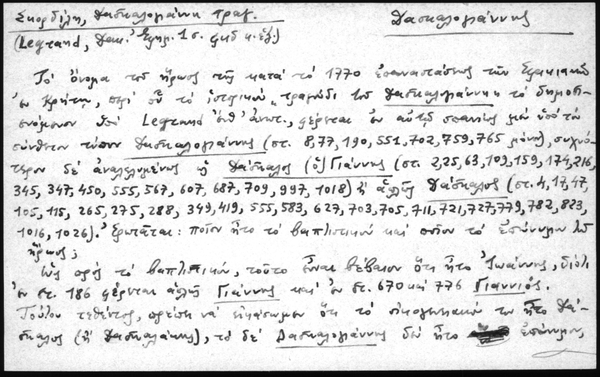 Σκορδίλη, Δασκαλογιάννη τραγ. Δασκαλογιάννης
(Legrand, Δακ. Ἑλλην. 1 σ. κ. ἑξ.)
Τὸ ὄνομα τοῦ ἥρωος τῆς κατὰ τὸ 1770 ἐπαναστάσεως τῶν Σφακιανῶν
ἐν Κρήτῃ, περὶ οὗ τὸ ἱστορικὸν „τραγοῦδι τοῦ Δασκαλογιάννη" τὸ δημοσι-
ευόμενον ὑπὸ Legrand ἔνθ' ἀνωτ., φέρεται ἐν αὐτῷ σπανίως μὲν ὑπὸ τὸν
σύνθετον τύπον Δασκαλογιάννης (στ. 8, 77, 190, 551, 702, 759, 765 μόνον), συχνό-
τερον δὲ ἀναλελυμένως ἢ Δάσκαλος (ὁ) Γιάννης (στ. 2, 25, 63, 109, 159, 174, 216,
345, 347, 450, 555, 567, 607, 687, 709, 997, 1018) ἢ ἁπλῶς Δάσκαλος (στ. 4, 17, 47,
105, 115, 265, 275, 288, 349, 419, 555, 583, 627, 703, 705, 711, 721, 727, 779, 782, 823,
1016, 1026). Ἐρωτᾶται: ποῖον ἦτο τὸ βαπτιστικὸν καὶ ποῖον τὸ ἐπώνυμον τοῦ
ἥρωος;
Ὡς πρὸς τὸ βαπτιστικόν, τοῦτο εἶναι βέβαιον ὅτι ἦτο Ἰωάννης, διότι
ἐν στ. 186 φέρεται ἁπλῶς Γιάννης καὶ ἐν στ. 670 καὶ 776 Γιαννιός.
Τούτου τεθέντος, πρέπει νὰ εἰκάσωμεν ὅτι τὸ οἰκογενειακόν του ἦτο Δά-
σκαλος (ἢ Δασκαλάκης), τὸ δὲ Δασκαλογιάννης δὲν ἦτο ἐπώνυμον,